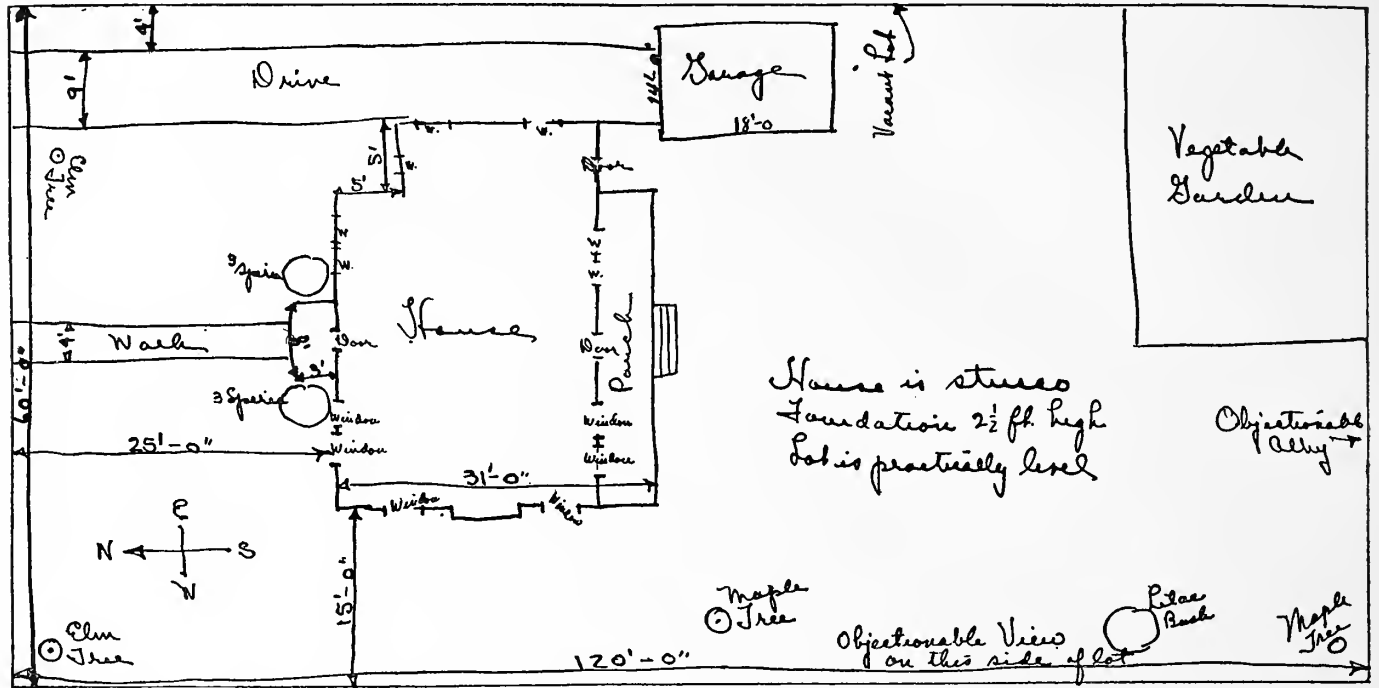 4'
9'
Drive
Garage
14'-0"
18'-0
Vacant Lot
Vegetable
Garden
Elm
Tree
5'
5'
W.
W.
W.
Door
W.
W.
W.
W.
3 Spirea
8'
3'
Door
House
Door
Porch
4'
Walk
60'-0"
3 Spirea
Window
Window
Window
Window
25'-0"
31'-0"
Window
Window
House is stucco
Foundation 2½ ft. high
Lot is practically level
Objectionable
Alley
N
S
15'-0"
Elm
Tree
Maple
Tree
Objectionable View
on this side of lot
Lilac
Bush
Maple
Tree
120'-0"